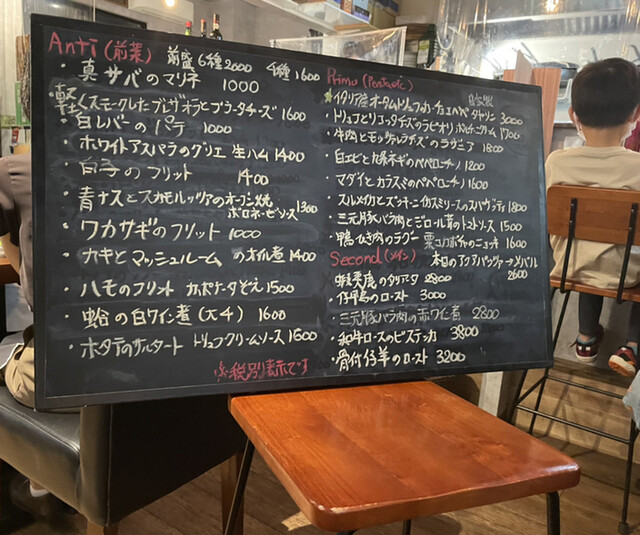 Anti (前菜) 前盛6種2000 4種1600
・真サバのマリネ 1000
・軽くスモークしたブレザオラとブラータチーズ 1600
・白レバーのパテ 1000
・ホワイトアスパラのグリエ 生ハム 1400
・白子のフリット 1400
・青ナスとスカモルツァのオーブン焼 ボロネーゼソース 1300
・ワカサギのフリット 1000
・カキとマッシュルームのオイル煮 1400
・ハモのフリット カポナータぞえ 1500
・蛤の白ワイン煮(大4) 1600
・ホタテのサルタート トリュフクリームソース 1500
※税別表示です
Primo
自家製
★イタリア産オータムトリュフのカチョエペペ タヤリン 3000
・トリュフとリコッタチーズのラビオリ 1700
・牛肉とモッツァレラチーズのラザニア 1800
・白エビと九条ネギのペペロンチーノ 1800
・マダイとカラスミのペペロンチーノ 1600
・スルメイカとズッキーニ イカスミソースのスパゲッティ 1800
・三元豚バラ肉とジロール茸のトマトソース 1500
・鴨ひき肉のラグー 栗カボチャのニョッキ 1600
Second (メイン)
本日のアクアパッツァ→メバル 2600
・蝦夷鹿のタリアータ 2800
・仔鳩のロースト 3000
・三元豚バラ肉の赤ワイン煮 2800
・和牛ロースのビステッカ 3800
・骨付仔羊のロースト 3200